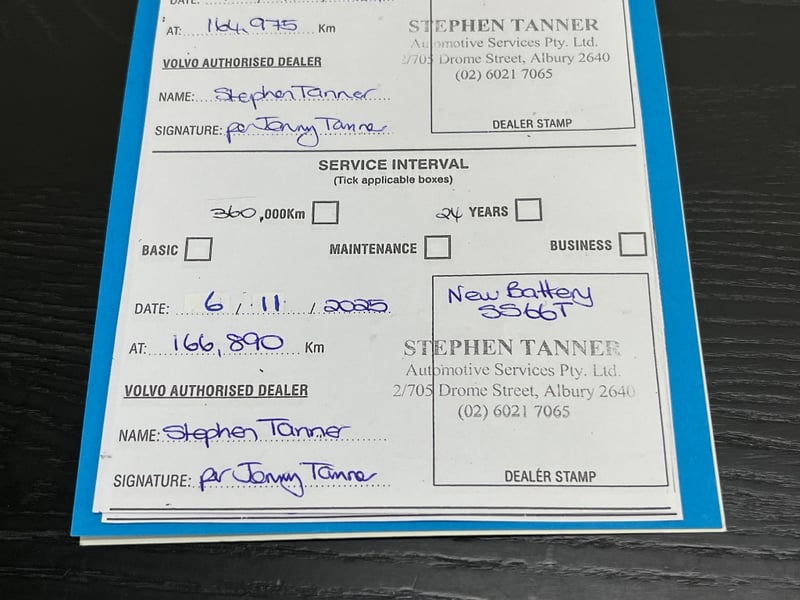 DATE:
AT: 164,975 Km
STEPHEN TANNER
Automotive Services Pty. Ltd.
2/705 Drome Street, Albury 2640
(02) 6021 7065
VOLVO AUTHORISED DEALER
NAME: Stephen Tanner
SIGNATURE: per Jonny Tanner
DEALER STAMP
SERVICE INTERVAL
(Tick applicable boxes)
360,000Km
24 YEARS
BASIC
MAINTENANCE
BUSINESS
DATE: 6 / 11 / 2025
New Battery
SS66T
AT: 166,890 Km
STEPHEN TANNER
Automotive Services Pty. Ltd.
2/705 Drome Street, Albury 2640
(02) 6021 7065
VOLVO AUTHORISED DEALER
NAME: Stephen Tanner
SIGNATURE: per Jonny Tanner
DEALER STAMP